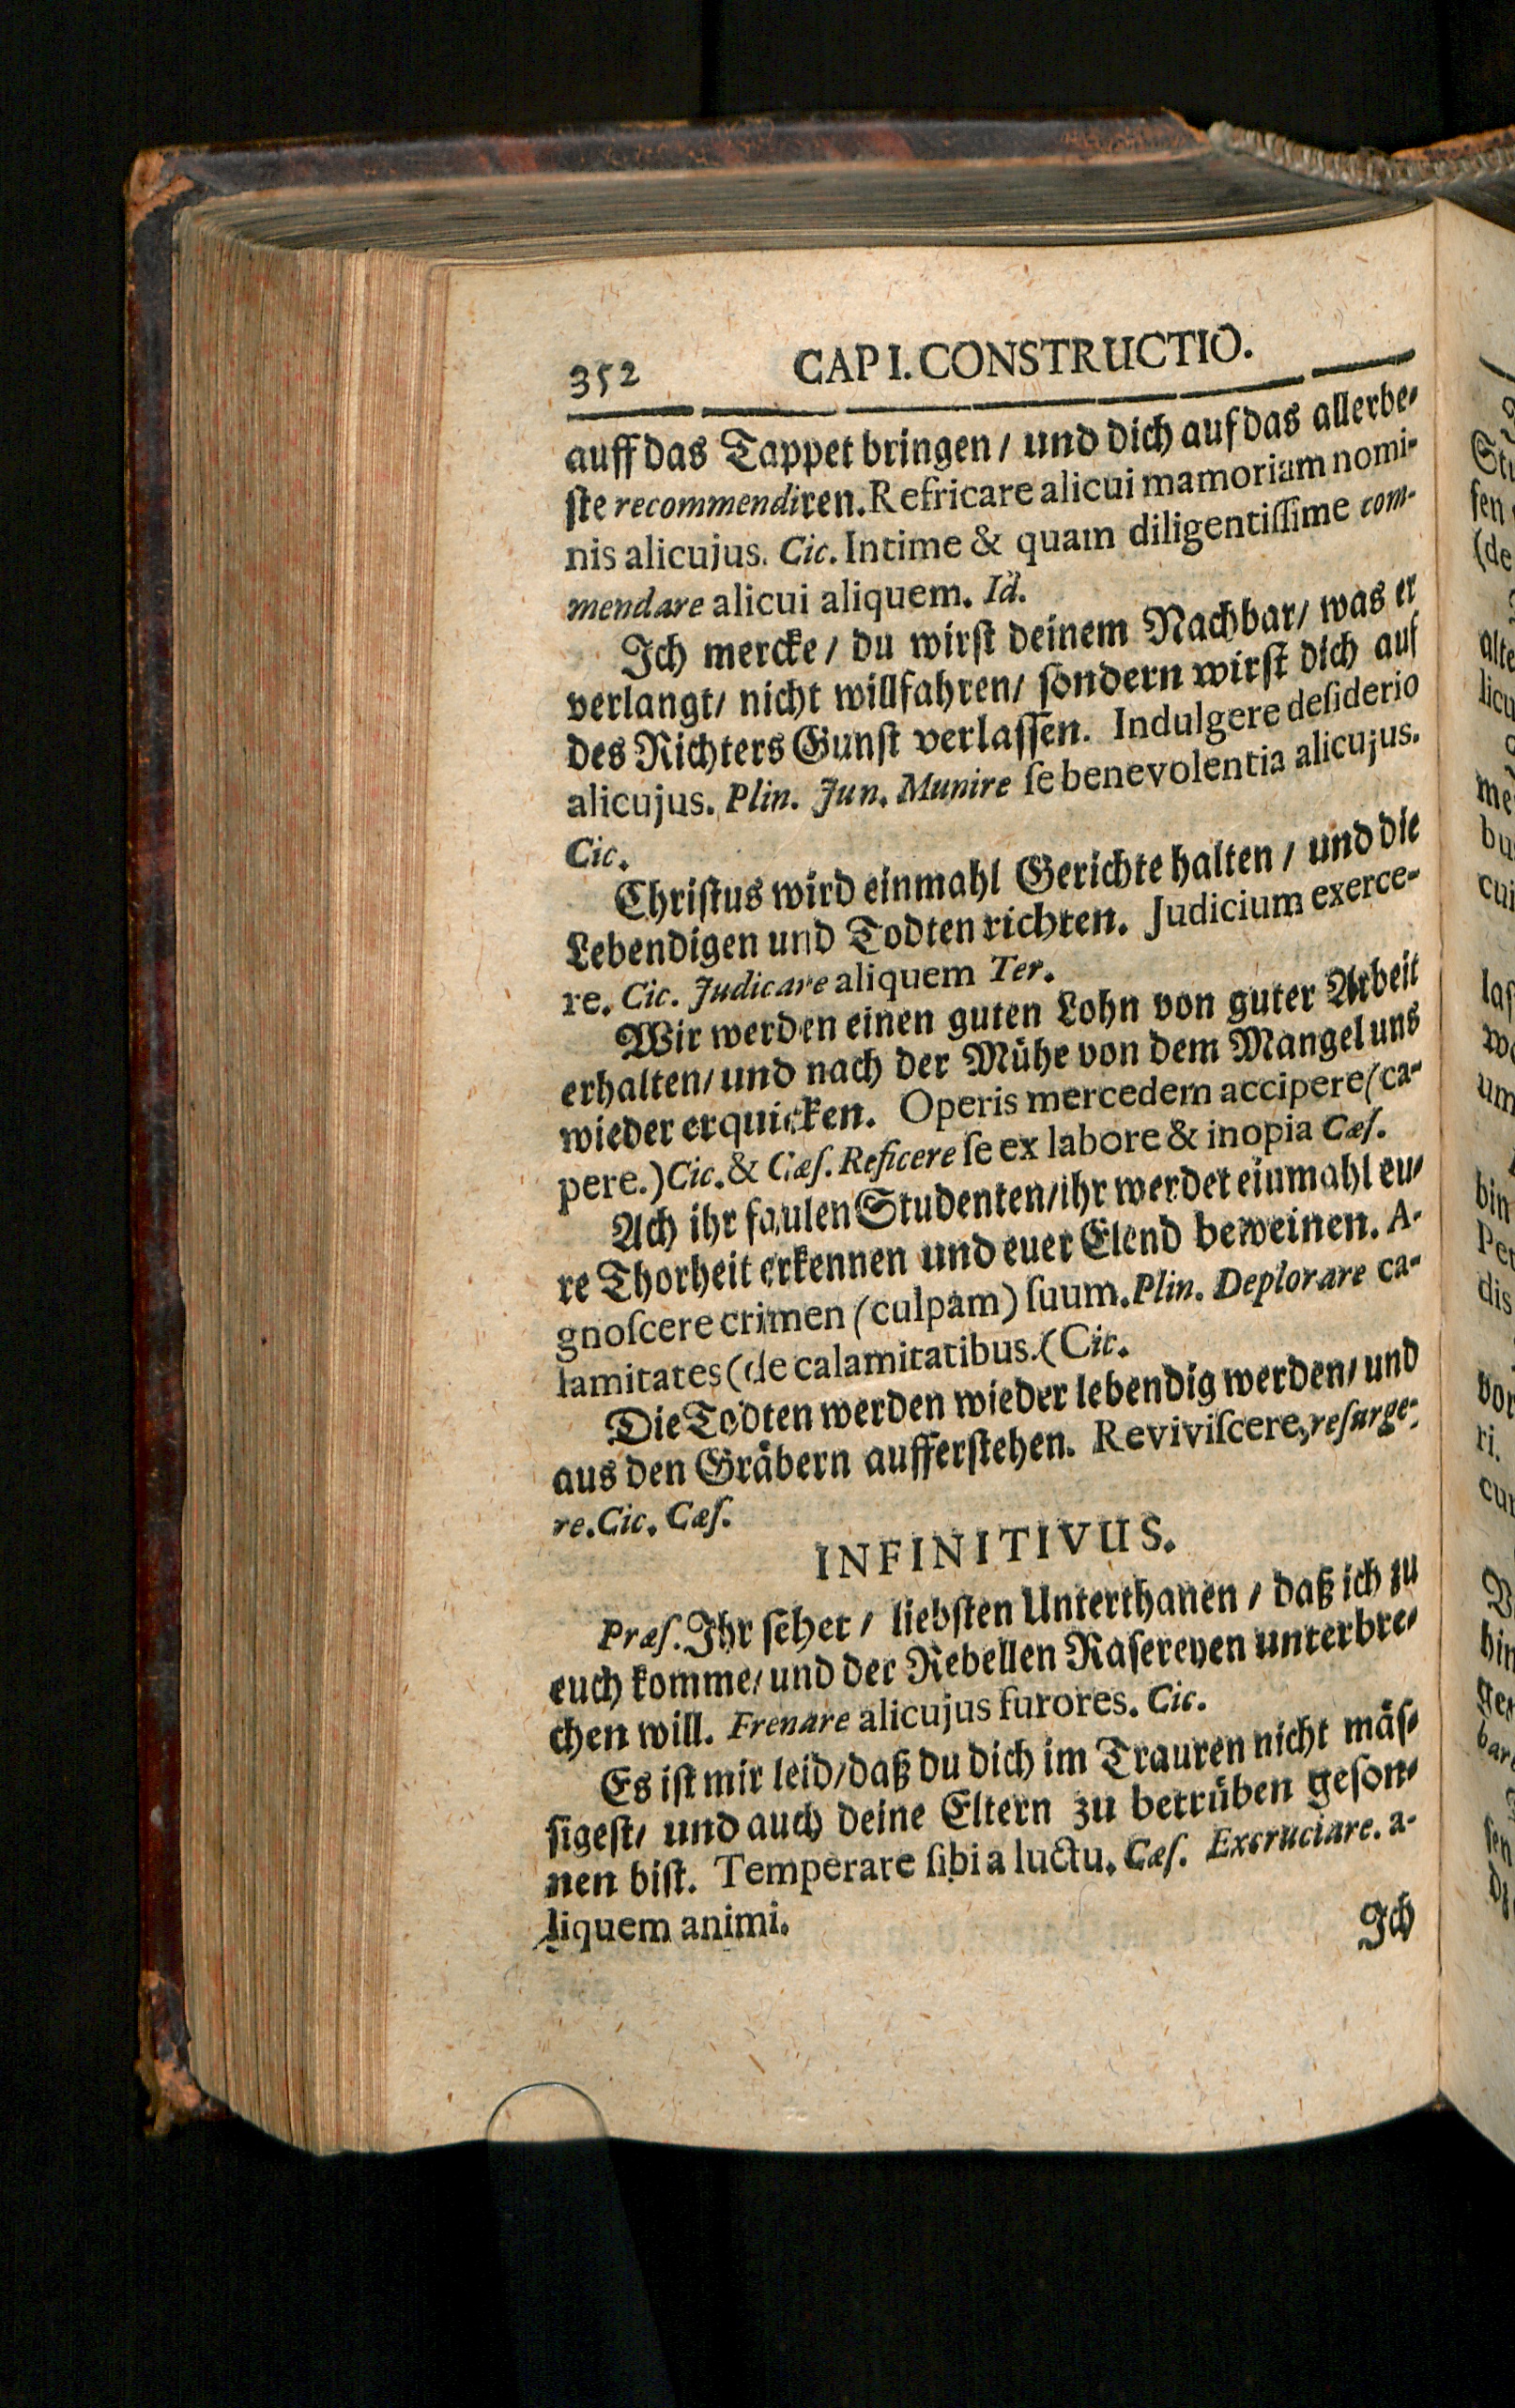 352 CAP I. CONSTRUCTIO.
auff das Tappet bringen / und dich auf das allerbe-
ste recommendiren. Refricare alicui mamoriam nomi-
nis alicujus. Cic. Intime & quam diligentiſſime com-
mendare alicui aliquem. Id.
Ich mercke / du wirſt deinem Nachbar / was er
verlangt / nicht willfahren / ſondern wirſt dich auf
des Richters Gunſt verlaſſen. Indulgere deſiderio
alicujus. Plin. Jun. Munire ſe benevolentia alicujus.
Cic.
Chriſtus wird einmahl Gerichte halten / und die
Lebendigen und Todten richten. Judicium exerce-
re. Cic. Judicare aliquem Ter.
Wir werden einen guten Lohn von guter Arbeit
erhalten / und nach der Mühe von dem Mangel uns
wieder erquicken. Operis mercedem accipere (ca-
pere.) Cic. & Cæſ. Reficere ſe ex labore & inopia Cæſ.
Ach ihr faulen Studenten / ihr werdet einmahl eu-
re Thorheit erkennen und euer Elend beweinen. A-
gnoſcere crimen (culpam) ſuum. Plin. Deplorare ca-
lamitates (de calamitatibus.( Cic.
Die Todten werden wieder lebendig werden / und
aus den Gräbern aufferſtehen. Reviviſcere, reſurge-
re. Cic. Cæſ.
INFINITIVUS.
Præſ. Ihr ſehet / liebſten Unterthanen / daß ich zu
euch komme / und der Rebellen Raſereyen unterbre-
chen will. Frenare alicujus furores. Cic.
Es iſt mir leid / daß du dich im Trauren nicht mäſ-
ſigeſt / und auch deine Eltern zu betrüben geſon-
nen biſt. Temperare ſibi a luctu. Cæſ. Excruciare. a-
liquem animi.
Ich